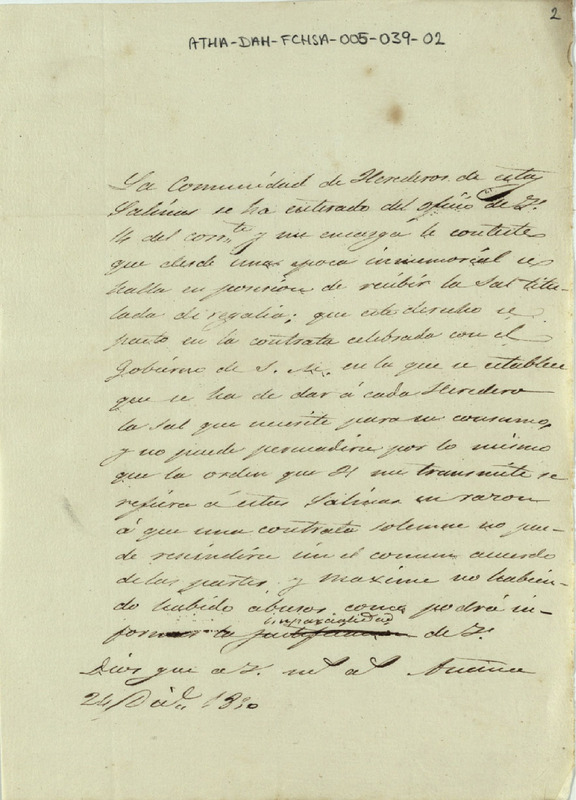 2
ATHA-DAH-FCHSA-005-039-02
La Comunidad de Herederos de estas
Salinas se ha enterado del oficio de V.
14 del corr.te y me encarga le conteste
que desde una epoca inmemorial se
halla en posesion de recibir la Sal titu-
lada de regalia; que este derecho se
pacto en la contrata celebrada con el
Gobierno de S. M. en la que se establece
que se ha de dar á cada Heredero
la Sal que necesite para su consumo,
y no puede persuadirse por lo mismo
que la orden que me transmite se
refiera á estas Salinas en razon
á que una contrata solemne no pue-
de rescindirse sin el comun acuerdo
de las partes, y maxime no habien-
do habido abusos como podrá in-
formar la imparcialidad de V.
Dios gue a V. ms as Añana
24 Dic.e 1830